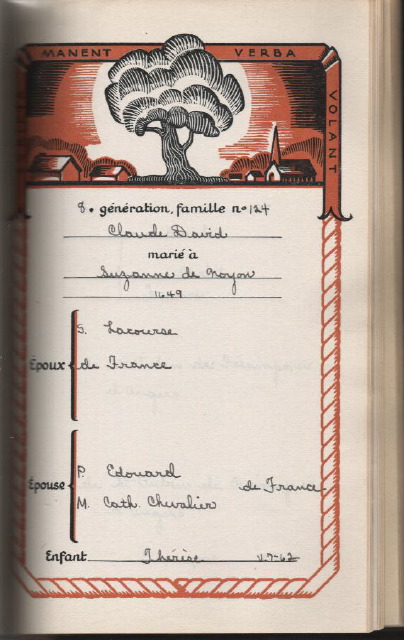 MANENT VERBA VOLANT
8e génération, famille no 124
Claude David
marié à
Suzanne de Noyon
1649
S. Lacourse
Époux de France
P. Edouard de France
Épouse
M. Cath. Chevalier
Enfant Thérèse -7-62